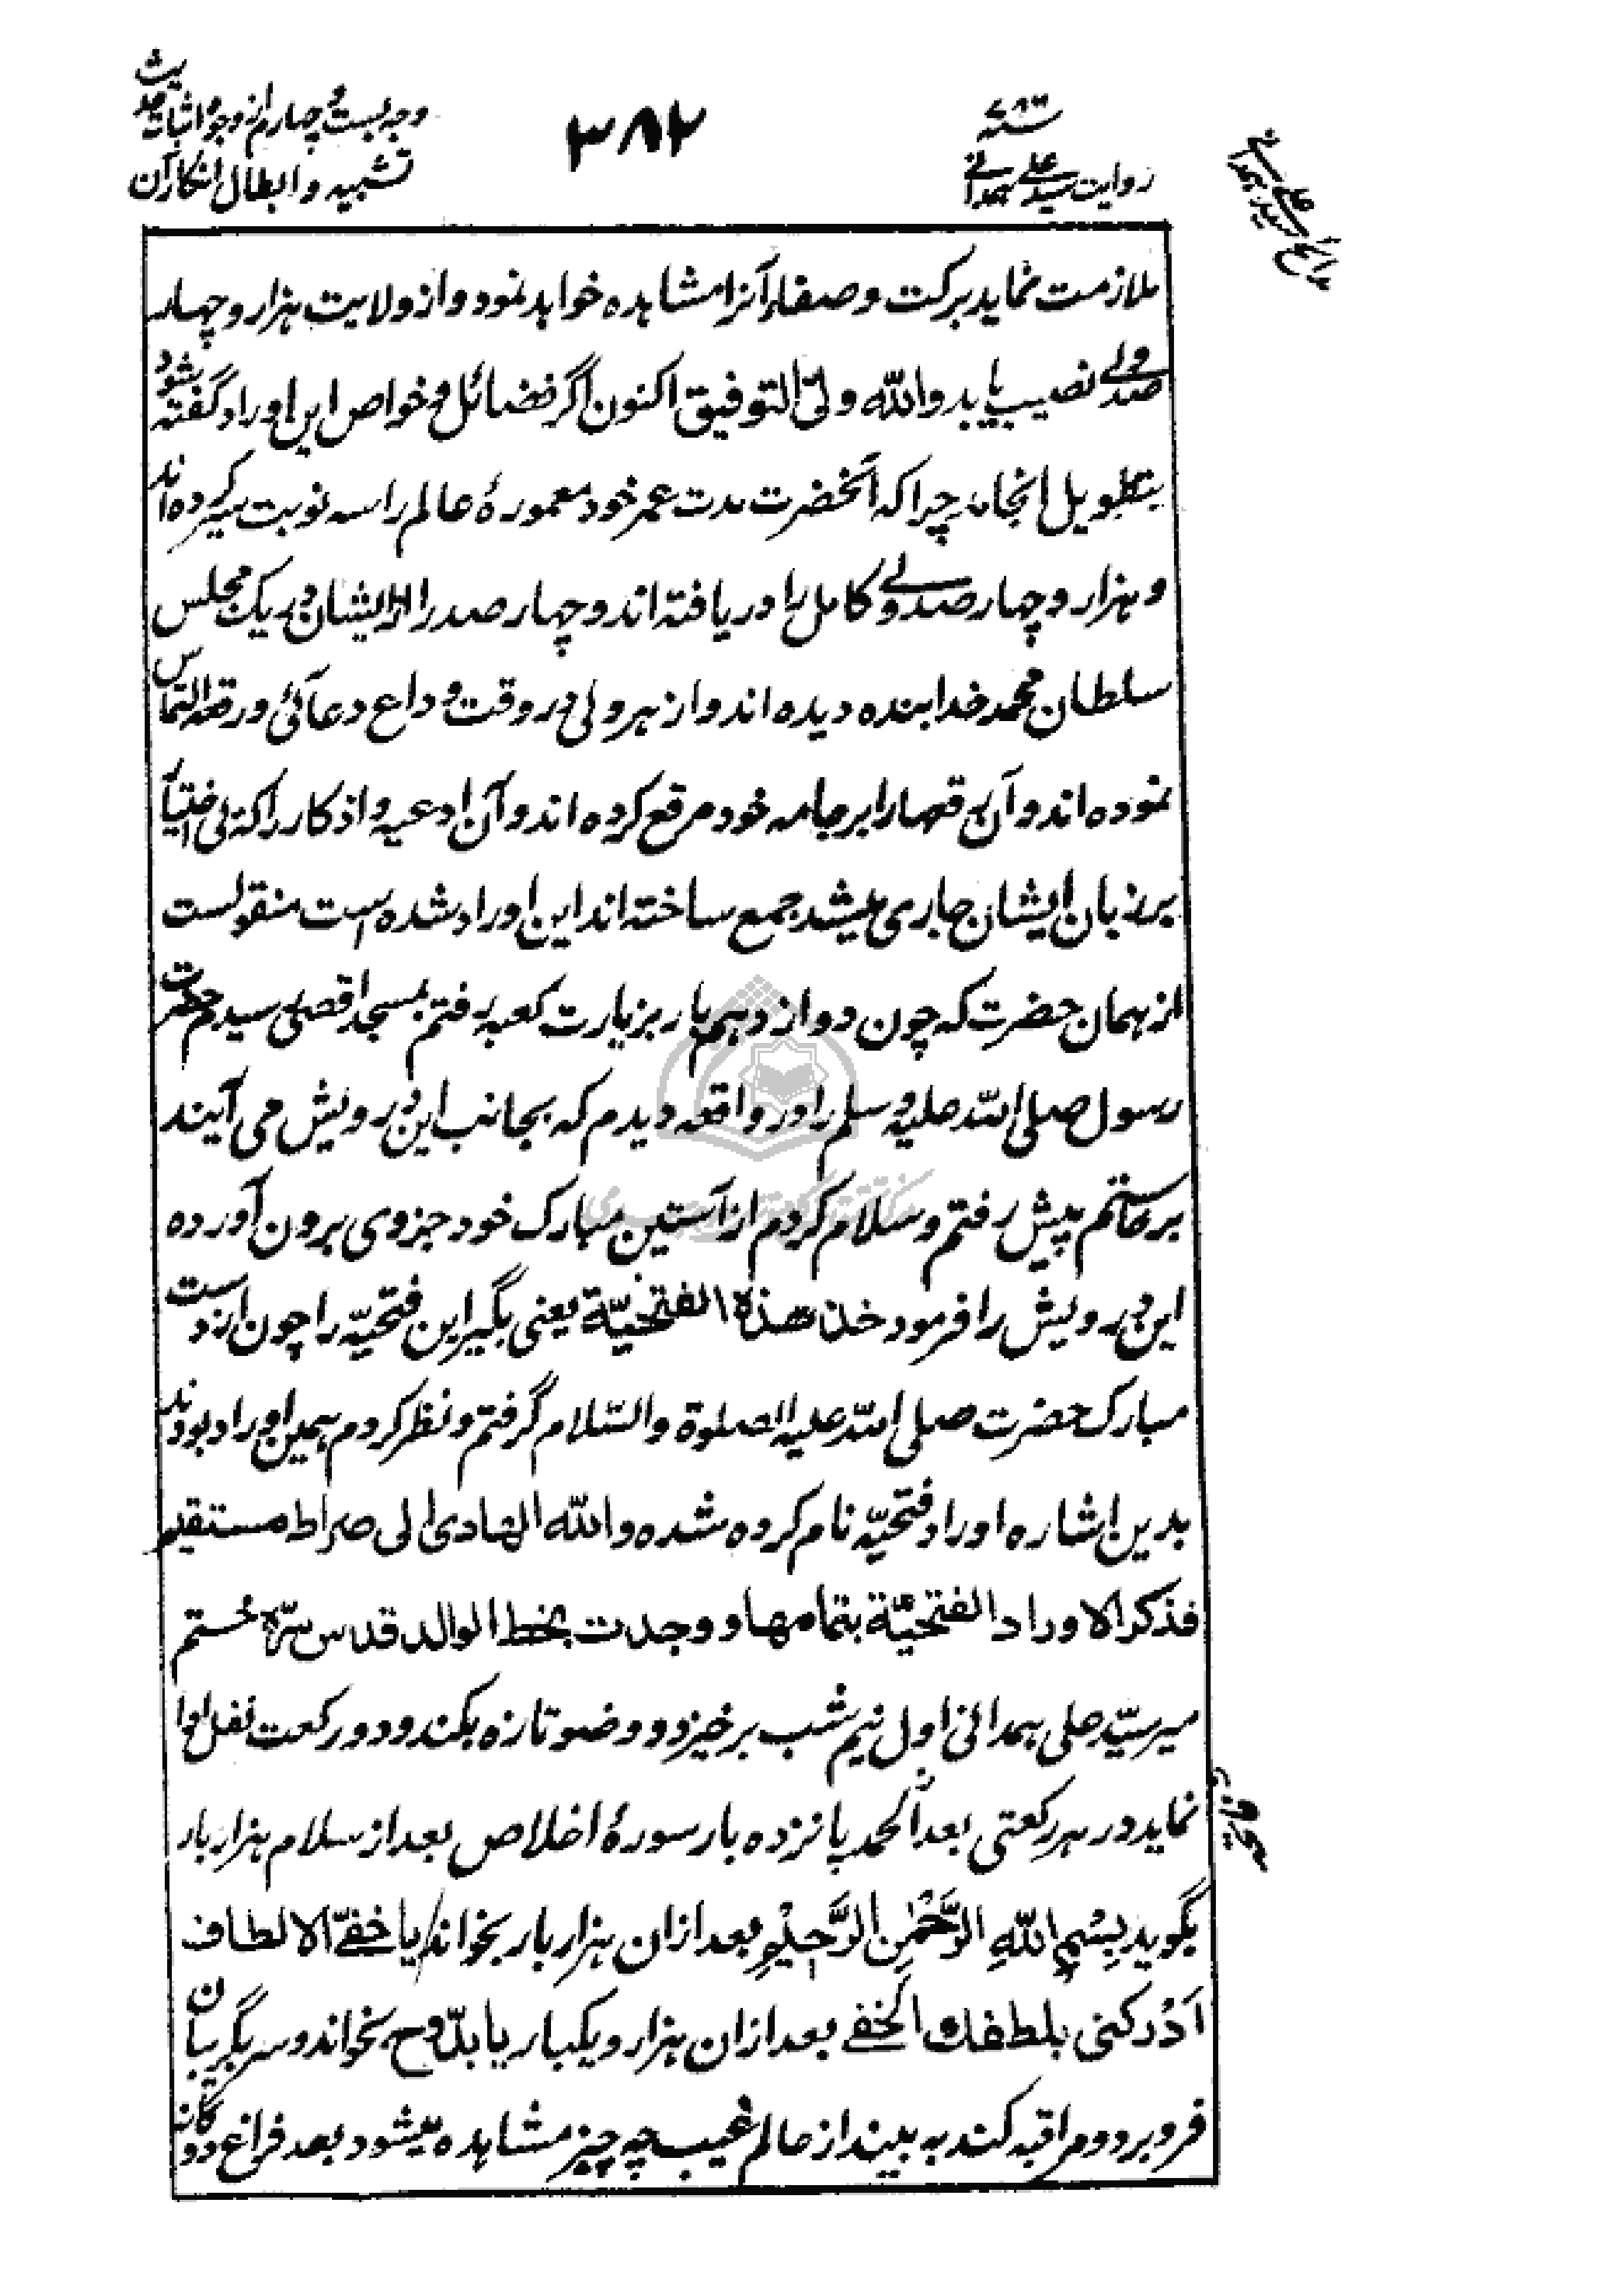 وجه بست و چهارم از وجوه اثبات حدیث
تشبیه و ابطال انکار آن
۳۸۲
تتمّه
روایت سید علی همدانی
مدائح سید علی همدانی
ملازمت نماید برکت و صفاء آنرا مشاهده خواهد نمود و از ولایت هزار و چهار
صد ولی نصیب یابد والله ولیّ التوفیق اکنون اگر فضائل و خواص این اوراد گفته شود
بتطویل انجامد چراکه آنحضرت مدت عمر خود معمورهٔ عالم را سه نوبت سیر کرده اند
و هزار و چهار صد ولی کامل را دریافته اند و چهار صد را از ایشان در یک مجلس
سلطان محمد خدابنده دیده اند و از هر ولی در وقت وداع دعائی و رقعه التماس
نموده اند و آن رقعها را بر جامه خود مرقع کرده اند و آن ادعیه و اذکار را که بی اختیار
بر زبان ایشان جاری میشد جمع ساخته اند این اوراد شده است منقولست
از همان حضرت که چون دوازدهم بار بزیارت کعبه رفتم بمسجد اقصی رسیدم حضرت
رسول صلی الله علیه و سلم را در واقعه دیدم که بجانب این درویش می آیند
برخاستم پیش رفتم و سلام کردم از آستین مبارک خود جزوی برون آورده
این درویش را فرمود خذ هذه الفتحیّة یعنی بگیر این فتحیّه را چون از دست
مبارک حضرت صلی الله علیه الصلوة والسّلام گرفتم و نظر کردم همین اوراد بودند
بدین اشاره اوراد فتحیّه نام کرده شده والله الهادی الی صراط مستقیم
فذکر الاوراد الفتحیّة بتمامها و وجدت بخط الوالد قدس سرّه ختم
میر سیّد علی همدانی اول نیم شب برخیزد و وضو تازه بکند و دو رکعت نفل ادا
نماید در هر رکعتی بعد الحمد پانزده بار سورهٔ اخلاص بعد از سلام هزار بار
بگوید بِسْمِ اللهِ الرَّحْمٰنِ الرَّحِیْمِ بعد ازان هزار بار بخواند یا خفیّ الالطاف
اَدْرکنی بلطفك الخفی بعد ازان هزار و یکبار یا بدّوح بخواند و سر بگریبان
فرو برد و مراقبه کند به بیند از عالم غیب چه چیز مشاهده میشود بعد فراغ دوگانه